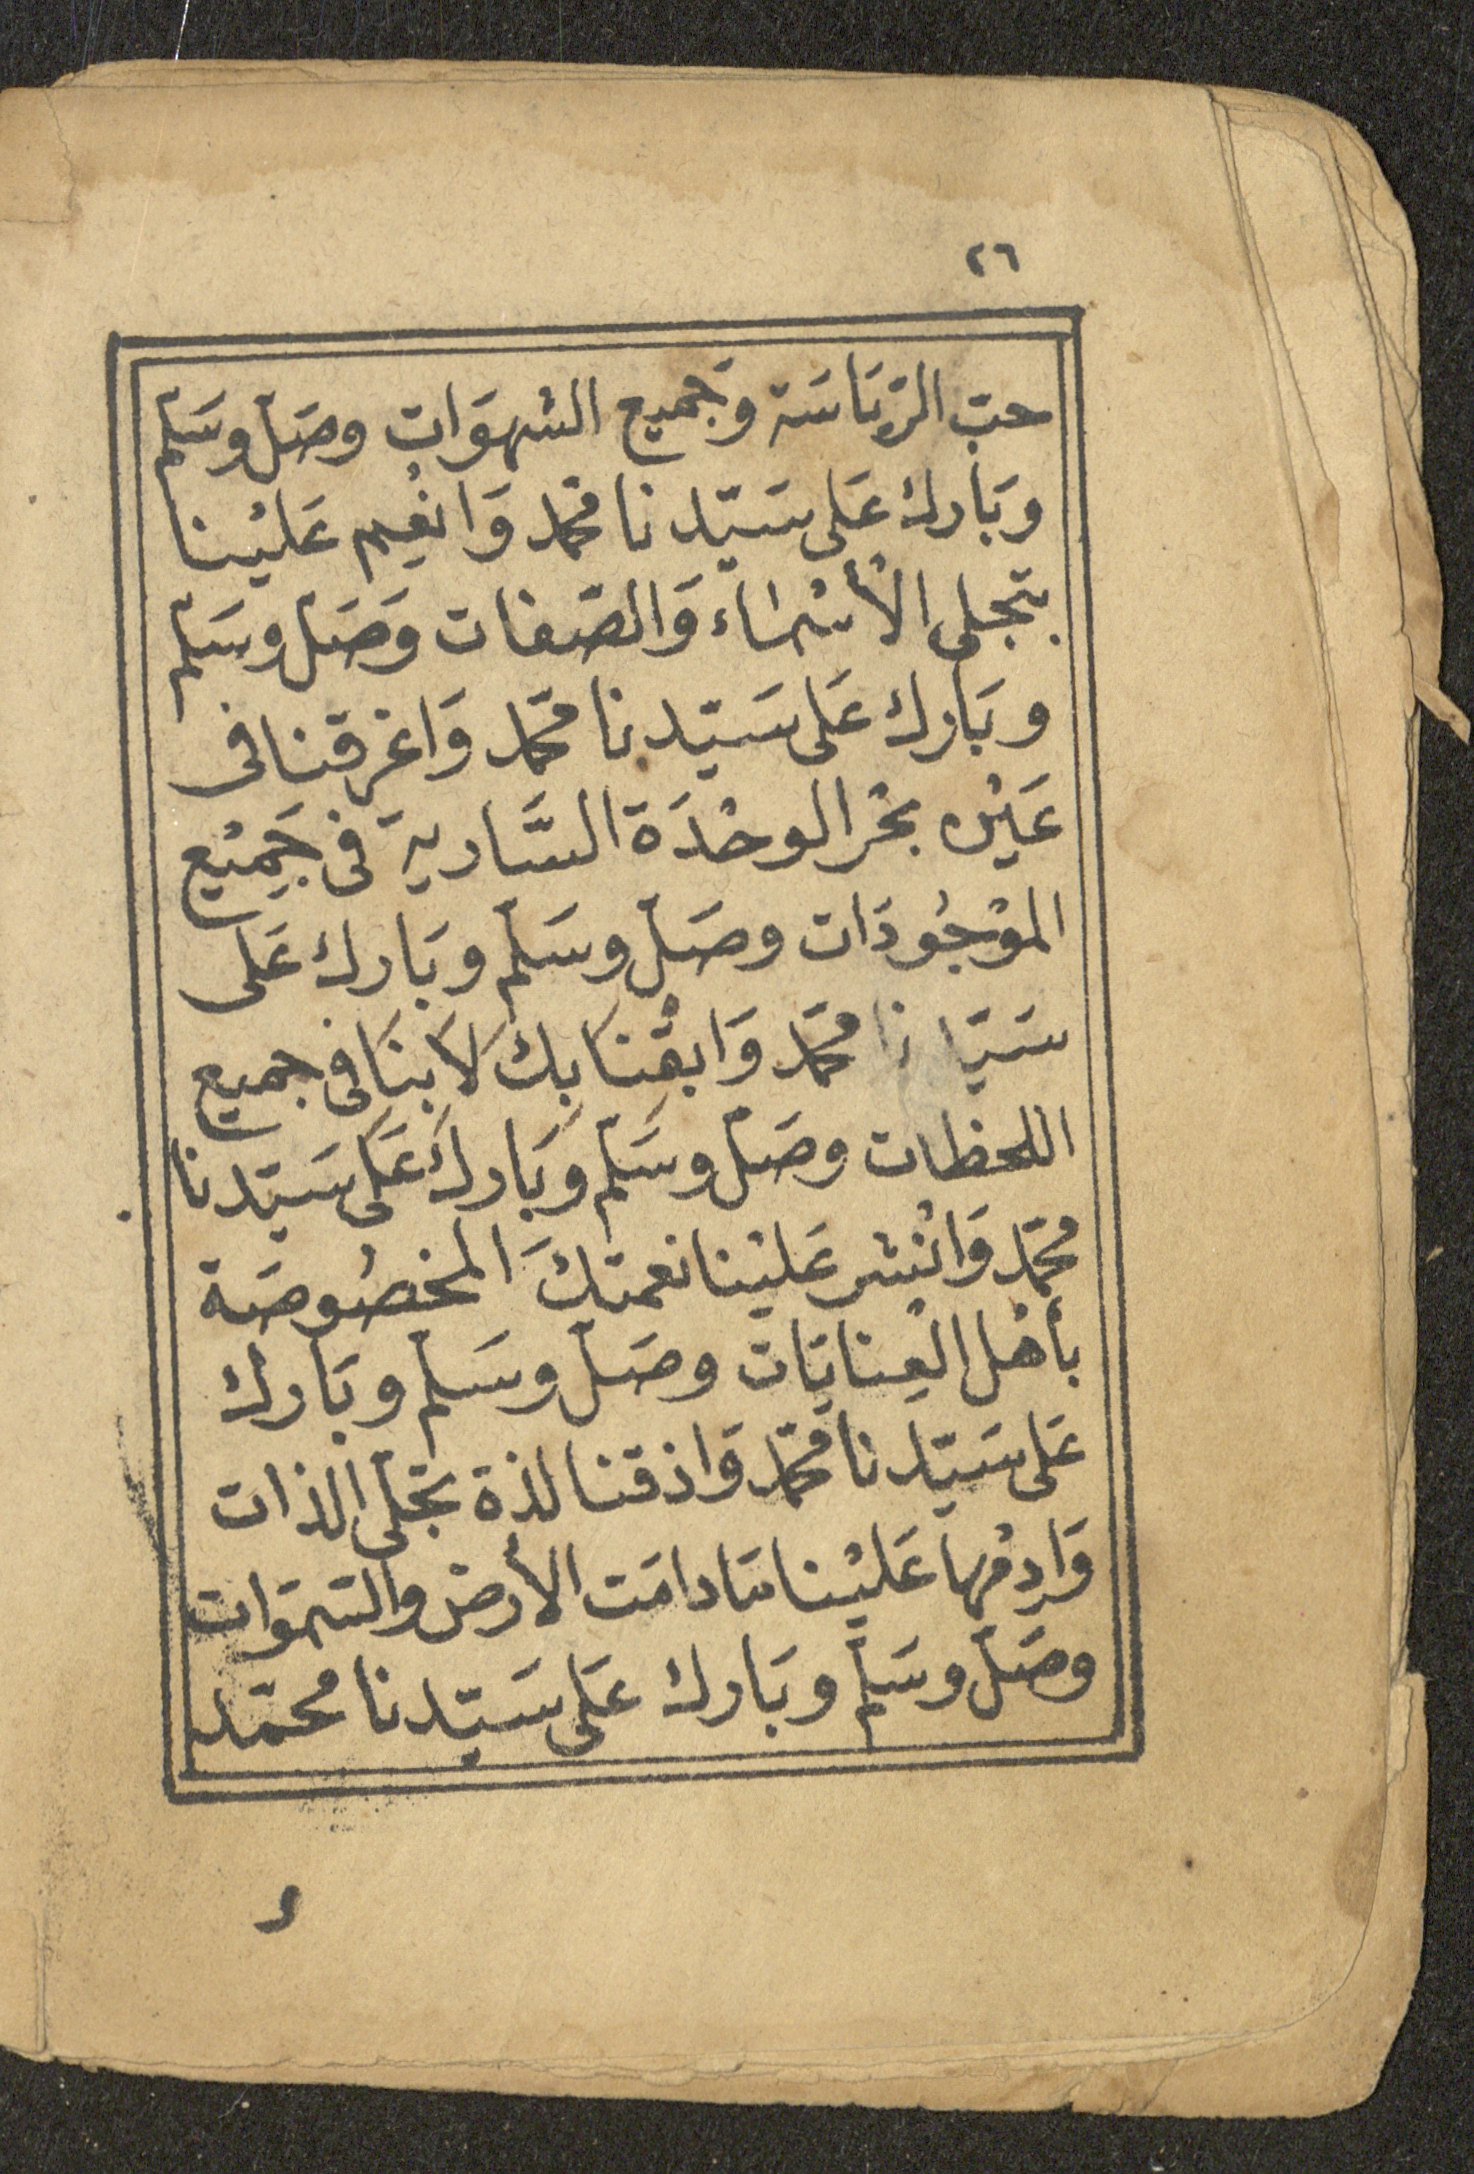 ٢٦
حبّ الرّيَاسَة وَجميع الشهوَات وصَلّ وسَلّم
وبَارك عَلى سَيّدنا محمّد وَانْعِم عَليْنا
بتجلى الأسْمَاء وَالصّفات وَصَلّ وسَلّم
وبَارك عَلى سَيّدنا محمّد وَاغرقنا فى
عَيْن بحْر الوحْدَة السَّارية فى جَمِيْع
الموْجُودَات وصَلّ وسَلّم وبَارك عَلى
سَيّدنا محمّد وَابْقنَا بِك لَا بنَا فى جميع
اللحظات وصَلّ وسَلّم وبَاركَ عَلى سَيّدنا
محمّد وَانْشر عَليْنا نعمتكَ المخصُوصَة
بأهْل الْعِنايَات وصَلّ وسَلّم وبَارك
عَلى سَيّدنا محمّد وَاذقنا لذة تجَلّى الذات
وَادِمْها عَليْنا مَا دامَت الأرض والسّموَات
وصَلّ وسَلّم وبَارك عَلى سَيّدنا محمّد